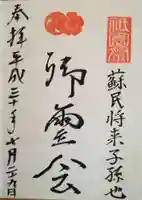 蘇民将来子孫也
御霊会
奉拝平成三十年七月二十九日